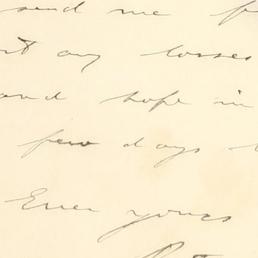 send me
any losses
and hope in
few days
Ever yours